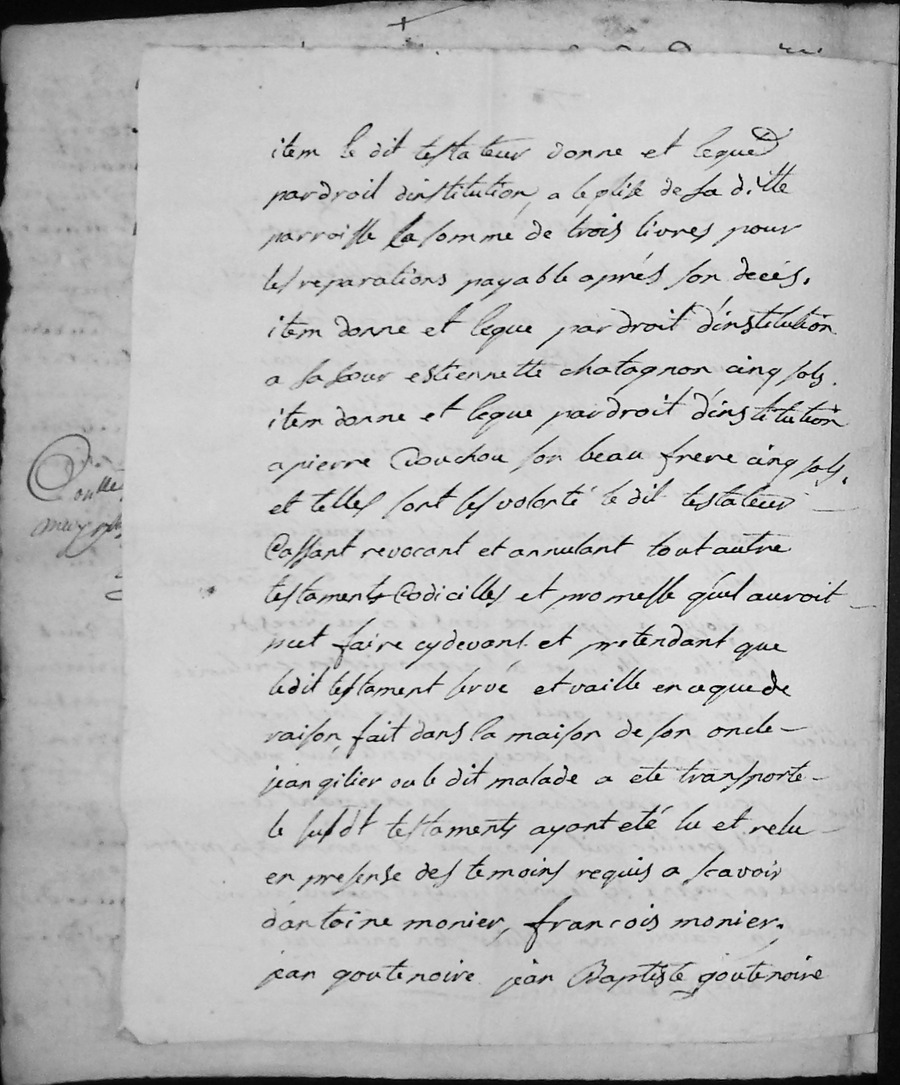 item le dit testateur donne et legue
par droit dinstitution, a leglise de sa ditte
parroisse la somme de trois livres pour
les reparations payable aprés son decés.
item donne et legue par droit d'institution
a sa sœur estiennette chatagnon cinq sols.
item donne et legue par droit d'institution
a pierre Couchou son beau frere cinq sols.
et telles sont ses volonté le dit testateur
Cassant revocant et annulant tout autre
testaments Codicilles et promesse qu'il auroit
put faire cy devant et pretendant que
le dit testament serve et vaille en ce que de
raison, fait dans la maison de son oncle
jean gilier ou le dit malade a eté transporte
le susdt testaments ayant eté lu et relu
en presense des temoins requis a scavoir
dantoine monier, francois monier,
jean goutenoire jean Baptiste goutenoire